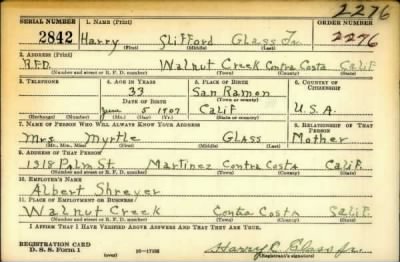 2276
SERIAL NUMBER 1. NAME (Print) ORDER NUMBER
2842 Harry Clifford Glass Jr. 2276
(First) (Middle) (Last)
2. ADDRESS (Print)
R.F.D. Walnut Creek Contra Costa Calif
(Number and street or R. F. D. number) (Town) (County) (State)
3. TELEPHONE 4. AGE IN YEARS 5. PLACE OF BIRTH 6. COUNTRY OF CITIZENSHIP
33 San Ramon
DATE OF BIRTH (Town or county)
June 5 1907 Calif U.S.A.
(Exchange) (Number) (Mo.) (Day) (Yr.) (State or country)
7. NAME OF PERSON WHO WILL ALWAYS KNOW YOUR ADDRESS RELATIONSHIP OF THAT PERSON
Mrs. Myrtle Glass Mother
(Mr., Mrs., Miss) (First) (Middle) (Last)
9. ADDRESS OF THAT PERSON
1318 Palm St. Martinez Contra Costa Calif.
(Number and street or R. F. D. number) (Town) (County) (State)
10. EMPLOYER'S NAME
Albert Shreyer
11. PLACE OF EMPLOYMENT OR BUSINESS
Walnut Creek Contra Costa Calif.
(Number and street or R. F. D. number) (Town) (County) (State)
I AFFIRM THAT I HAVE VERIFIED ABOVE ANSWERS AND THAT THEY ARE TRUE.
REGISTRATION CARD
D. S. S. Form 1 (over) 16—17105 Harry C Glass Jr.
(Registrant's signature)